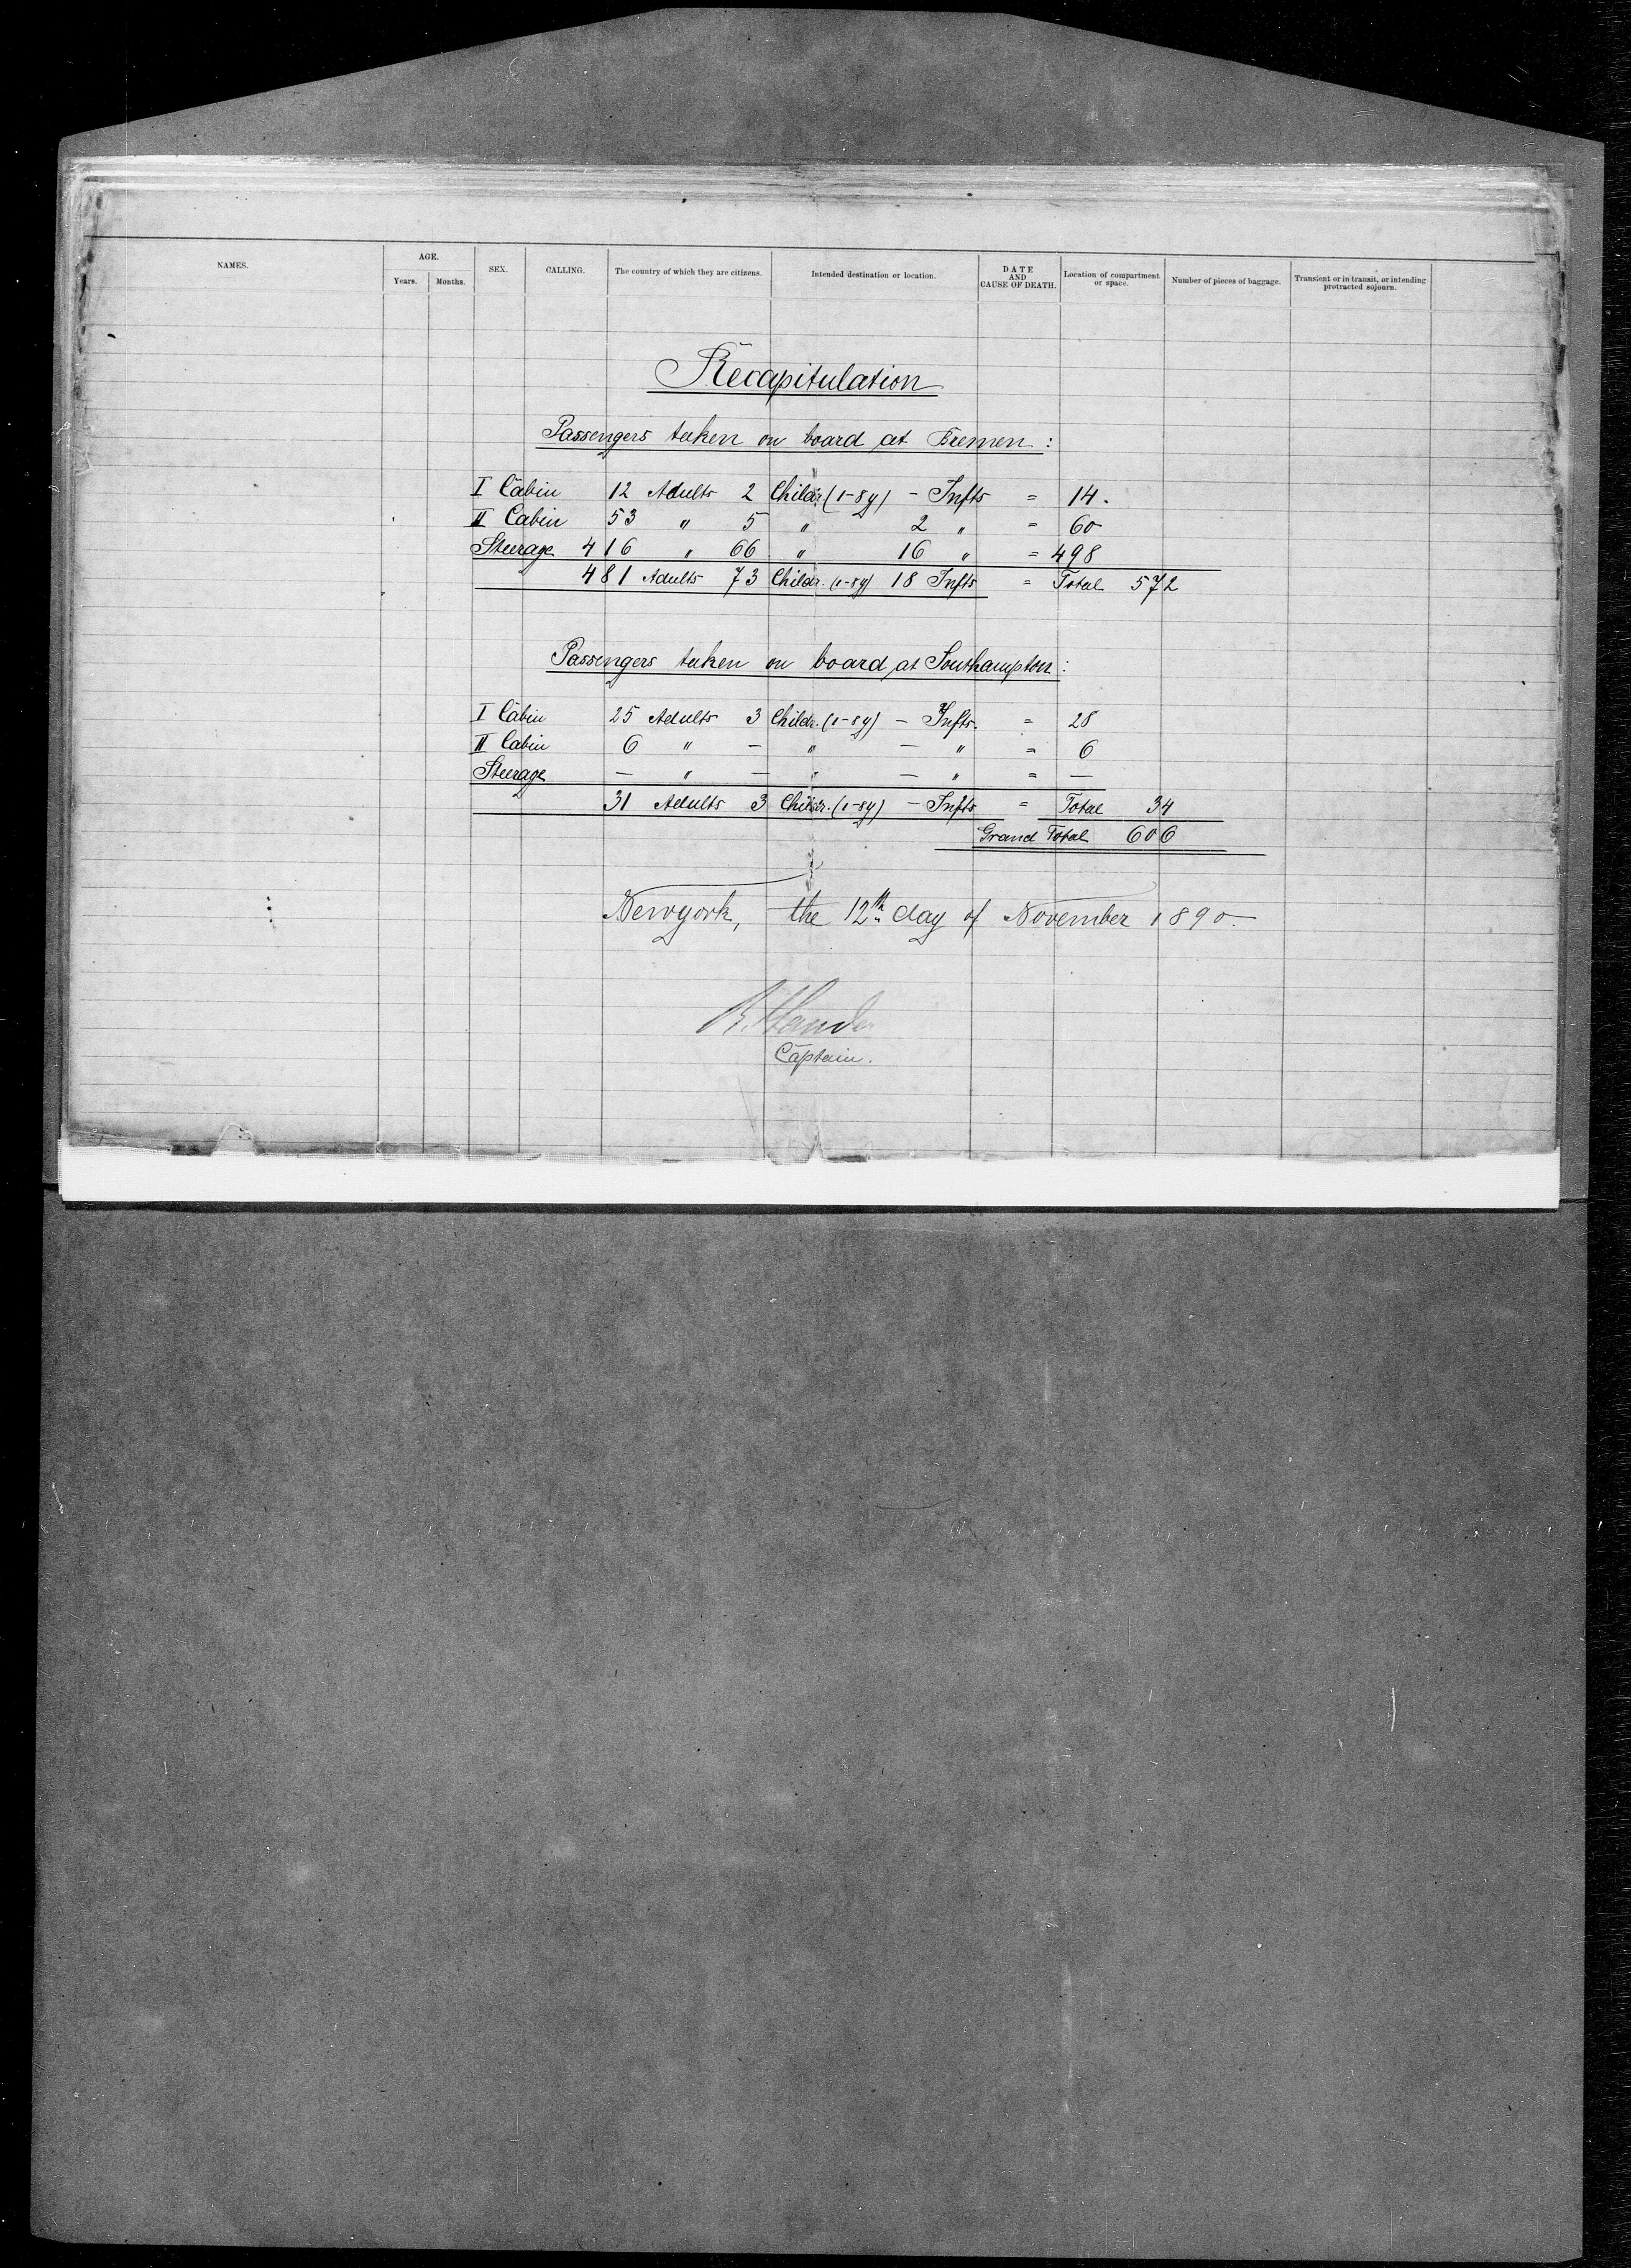 NAMES. AGE. SEX. CALLING. The country of which they are citizens. Intended destination or location. DATE AND CAUSE OF DEATH. Location of compartment or space. Number of pieces of baggage. Transient or in transit, or intending protracted sojourn.
Years. Months.
Recapitulation
Passengers taken on board at Bremen :
I Cabin 12 Adults 2 Childr. (1-8y) - Infts = 14.
II Cabin 53 " 5 " 2 " = 60
Steerage 416 " 66 " 16 " = 498
481 Adults 73 Childr. (1-8y) 18 Infts = Total 572
Passengers taken on board at Southampton :
I Cabin 25 Adults 3 Childr. (1-8y) - Infts. = 28
II Cabin 6 " - " - " = 6
Steerage - " - " - " = -
31 Adults 3 Childr. (1-8y) - Infts = Total 34
Grand Total 606
Newyork, the 12th day of November 1890.
Captain.